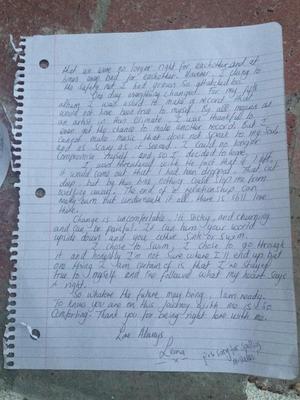 that we were no longer right for eachother and at
times even bad for eachother. However, I clung to
the safety net I had grown so attached to.
One day everything changed. For my 14th
album, I was asked to make a record that
would not have been true to myself. As all
an artist in this climate, I was thankful to
even get the chance to make another record. But I
cannot make music that does not speak to my soul,
and as scary as it seemed, I could no longer
compromise myself, and so I decided to leave.
I was threatened with the fact that if I left,
it would come out that I had been dropped. That cut
deep but by this time nothing could stop me from
walking away. The end of a relationship can
really burn but underneath it all there is still love
there.
Change is uncomfortable. It sucks, and changing
and can be painful. It can turn your world
upside down and you either sink or swim.
I chose to swim. I chose to go through
it and honestly I'm not sure where I'll end up but
one thing I am certain of is that I've stayed
true to myself and I've followed what my heart says
is right.
So whatever the future may bring, I am ready.
To know you are on this journey with me is so
comforting. Thank you for being right here with me.
Love Always,
Leona
x
p.s. sorry for spelling
mistakes